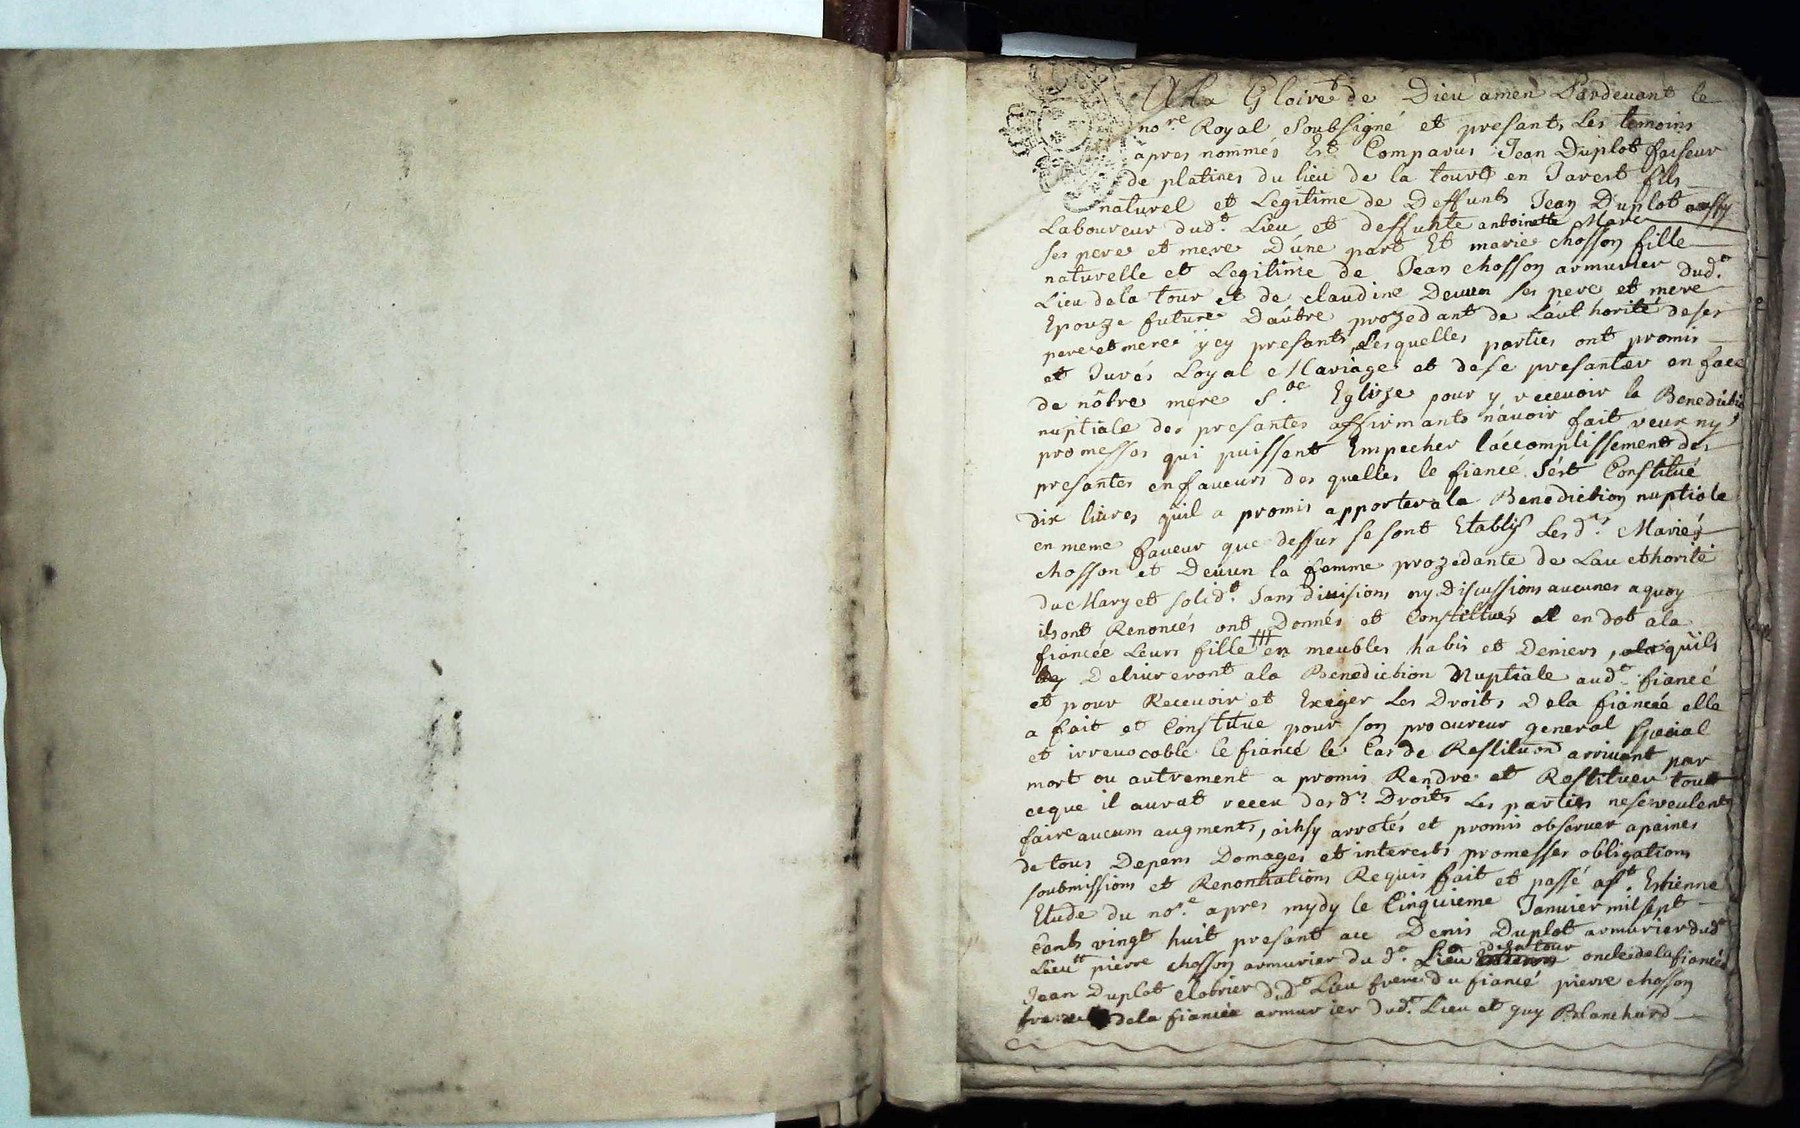 A La Gloire de Dieu amen Pardevant le
no.re Royal Soubsigné et presants Les temoins
apres nommés Est Comparus Jean Duplot faiseur
de platines du lieu de la tour en Jarest fils
naturel et Legitime de Deffunts Jean Duplot
Laboureur dud.t Lieu et deffunte antoinette Marc
ses pere et mere D'une part Et marie chosson fille
naturelle et Legitime de Jean chosson armurier dud.t
Lieu dela tour et de claudine Devun ses pere et mere
Epouze future D'autre prozedant de L'authorité de ses
pere et mere y cy presants, Lesquelles parties ont promis
et Jurés Loyal Mariage et de se presanter en face
de nôtre mere S.te Eglize pour y recevoir la Benedictio
nuptiale des presantes affirmants n'avoir fait veux ny
promesses qui puissent Empecher l'accomplissement des
presantes en faveurs des quelles le fiancé s'est Constitué
dix livres qu'il a promis apporter a la Benediction nuptiale
en meme faveur que dessus se sont Etablis Les d.ts Mariés
chosson et Devun la femme prozedante de Lau cthorité
du Mary et solid.t sans divisions ny Discussions aucunes a quoy
ils ont Renoncés ont Donnés et Constitués en dot a la
fiancée Leurs fille en meubles habis et Deniers, qu'ils
Delivreront a la Benediction Nuptiale aud.t fiancé
et pour Recevoir et Exiger Les Droits De la fiancée elle
a fait et Constitue pour son procureur general special
et irrevocable le fiancé le Cas de Restituon arrivant par
mort ou autrement a promis Rendre et Restituer tout
ce que il aurat receu desd.ts Droits Les parties ne se veulent
faire aucum augments, ainsy arrotés et promis observer a paines
de tous Depens Domages et interests promesses obligations
soubmissions et Renontiations Requis fait et passé a s.t Estienne
Etude du no.re apres mydy le Cinquieme Janvier mil sept
cents vingt huit presant Denis Duplot armurier dud.t
Lieu pierre chosson armurier du d.t Lieu de la tour oncle de la fiancée
Jean Duplot dud.t Lieu frere du fiancé pierre chosson
frere de la fiancée armurier dud.t Lieu et guy Blanchard